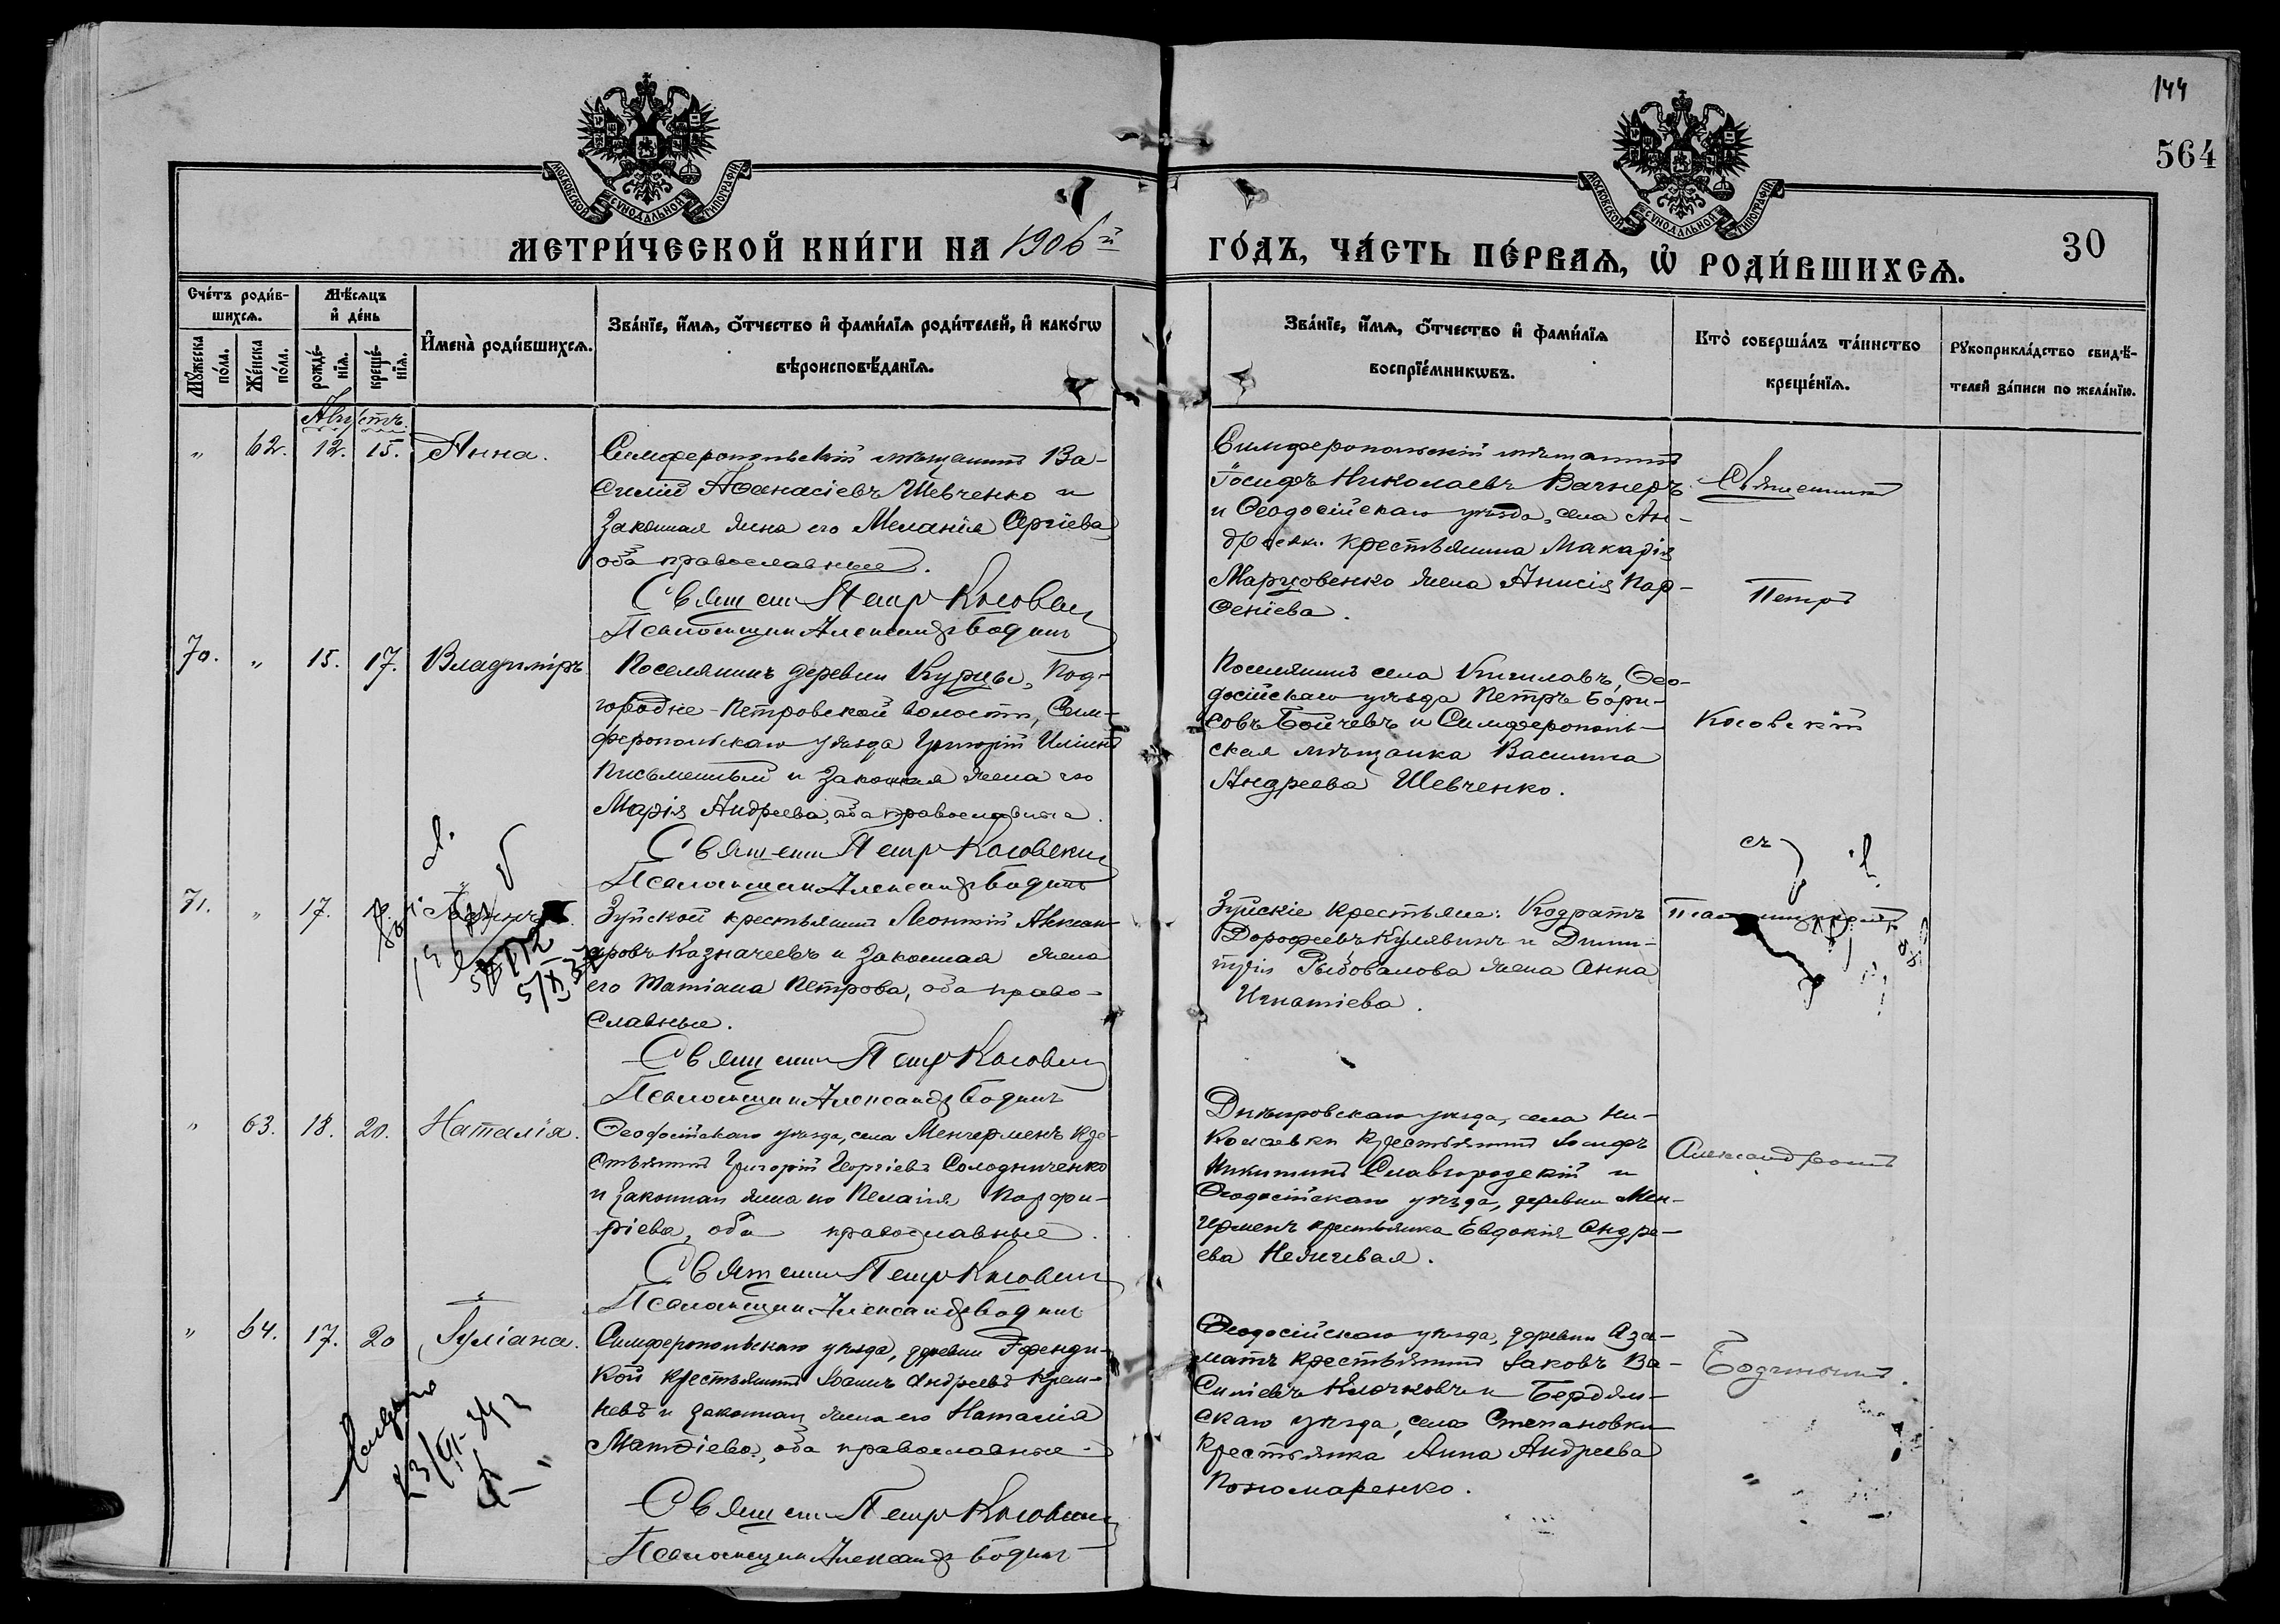 144
564
МОСКОВСКОЙ СѴНОДАЛЬНОЙ ТИПОГРАФІИ
МОСКОВСКОЙ СѴНОДАЛЬНОЙ ТИПОГРАФІИ
МЕТРИ́ЧЕСКОЙ КНИ́ГИ НА 1906й
ГО́ДЪ, ЧА́СТЬ ПЕ́РВАѦ, Ѡ҆ РОДИ́ВШИХСѦ.
30
Сче́тъ роди́в-
шихсѧ.
Мꙋ́жеска по́ла.
Же́нска по́ла.
Мѣ́сѧцъ
и҆ де́нь
рожде́-нїѧ.
креще́-нїѧ.
И҆мена̀ роди́вшихсѧ.
Зва́нїе, и҆́мѧ, ѻ҆́тчество и҆ фами́лїѧ роди́телей, и҆ како́гѡ
вѣроисповѣ́данїѧ.
Зва́нїе, и҆́мѧ, ѻ҆́тчество и҆ фами́лїѧ
воспрїе́мникѡвъ.
Кто̀ соверша́лъ та́инство
креще́нїѧ.
Рꙋкоприкла́дство свидѣ́-
телей за́писи по жела́нїю.
Августъ
" 62. 12. 15. Анна.
Симферопольскій мѣщанинъ Ва-
силій Аѳанасіевъ Шевченко и
законная жена его Меланія Сергіева,
оба православные.
Священ Петр Косовский
Псаломщик Александр Бодинъ
Симферопольскій мѣщанинъ
Іосифъ Николаевъ Вагнеръ
и Ѳеодосійскаго уѣзда, села Ан-
крестьянина Макарія
Марцовенко жена Анисія Пар-
ѳеніева.
Священникъ
Петръ
70. " 15. 17. Владиміръ
Поселянинъ деревни Курцы, Под-
городне-Петровской волости, Сим-
феропольскаго уѣзда Григорій Иліинъ
Письменный и законная жена его
Марія Андреева, оба православные.
Священ Петр Косовский
Псаломщик Александр Бодинъ
Поселянинъ села Кишлавъ, Ѳео-
досійскаго уѣзда Петръ Бори-
совъ Бойчевъ и Симферополь-
ская мѣщанка Василиса
Андреева Шевченко.
Косовскій
съ
71. " 17.
Зуйской крестьянинъ Леонтій Алексан-
дровъ Казначеевъ и законная жена
его Татіана Петрова, оба право-
славные.
Священ Петр Косовский
Псаломщик Александр Бодинъ
Зуйскіе крестьяне: Кодратъ
Дороѳеевъ Кулявинъ и Дими-
трія Рыбовалова жена Анна
Игнатіева.
" 63. 18. 20. Наталія.
Ѳеодосійскаго уѣзда, села Менгерменъ кре-
стьянинъ Григорій Георгіевъ Солодниченко
и законная жена его Пелагія Порфи-
ріева, оба православные.
Священ Петр Косовский
Псаломщик Александр Бодинъ
Днѣпровскаго уѣзда, села Ни-
колаевки крестьянинъ Іосифъ
Никитинъ Славгородскій и
Ѳеодосійскаго уѣзда, деревни Мен-
герменъ крестьянка Евдокія Андре-
ева
Александромъ
" 64. 17. 20 Іуліана.
Симферопольскаго уѣзда, деревни Эфенди-
кой крестьянинъ Іоаннъ Андреевъ Крем-
невъ и законная жена его Наталія
Матѳіева, оба православные.
Священ Петр Косовский
Псаломщик Александр Бодинъ
Ѳеодосійскаго уѣзда, деревни Аза-
матъ крестьянинъ Іаковъ Ва-
силіевъ Клочковъ и Бердян-
скаго уѣзда, села Степановки
крестьянка Анна Андреева
Пономаренко.
Бодинымъ.